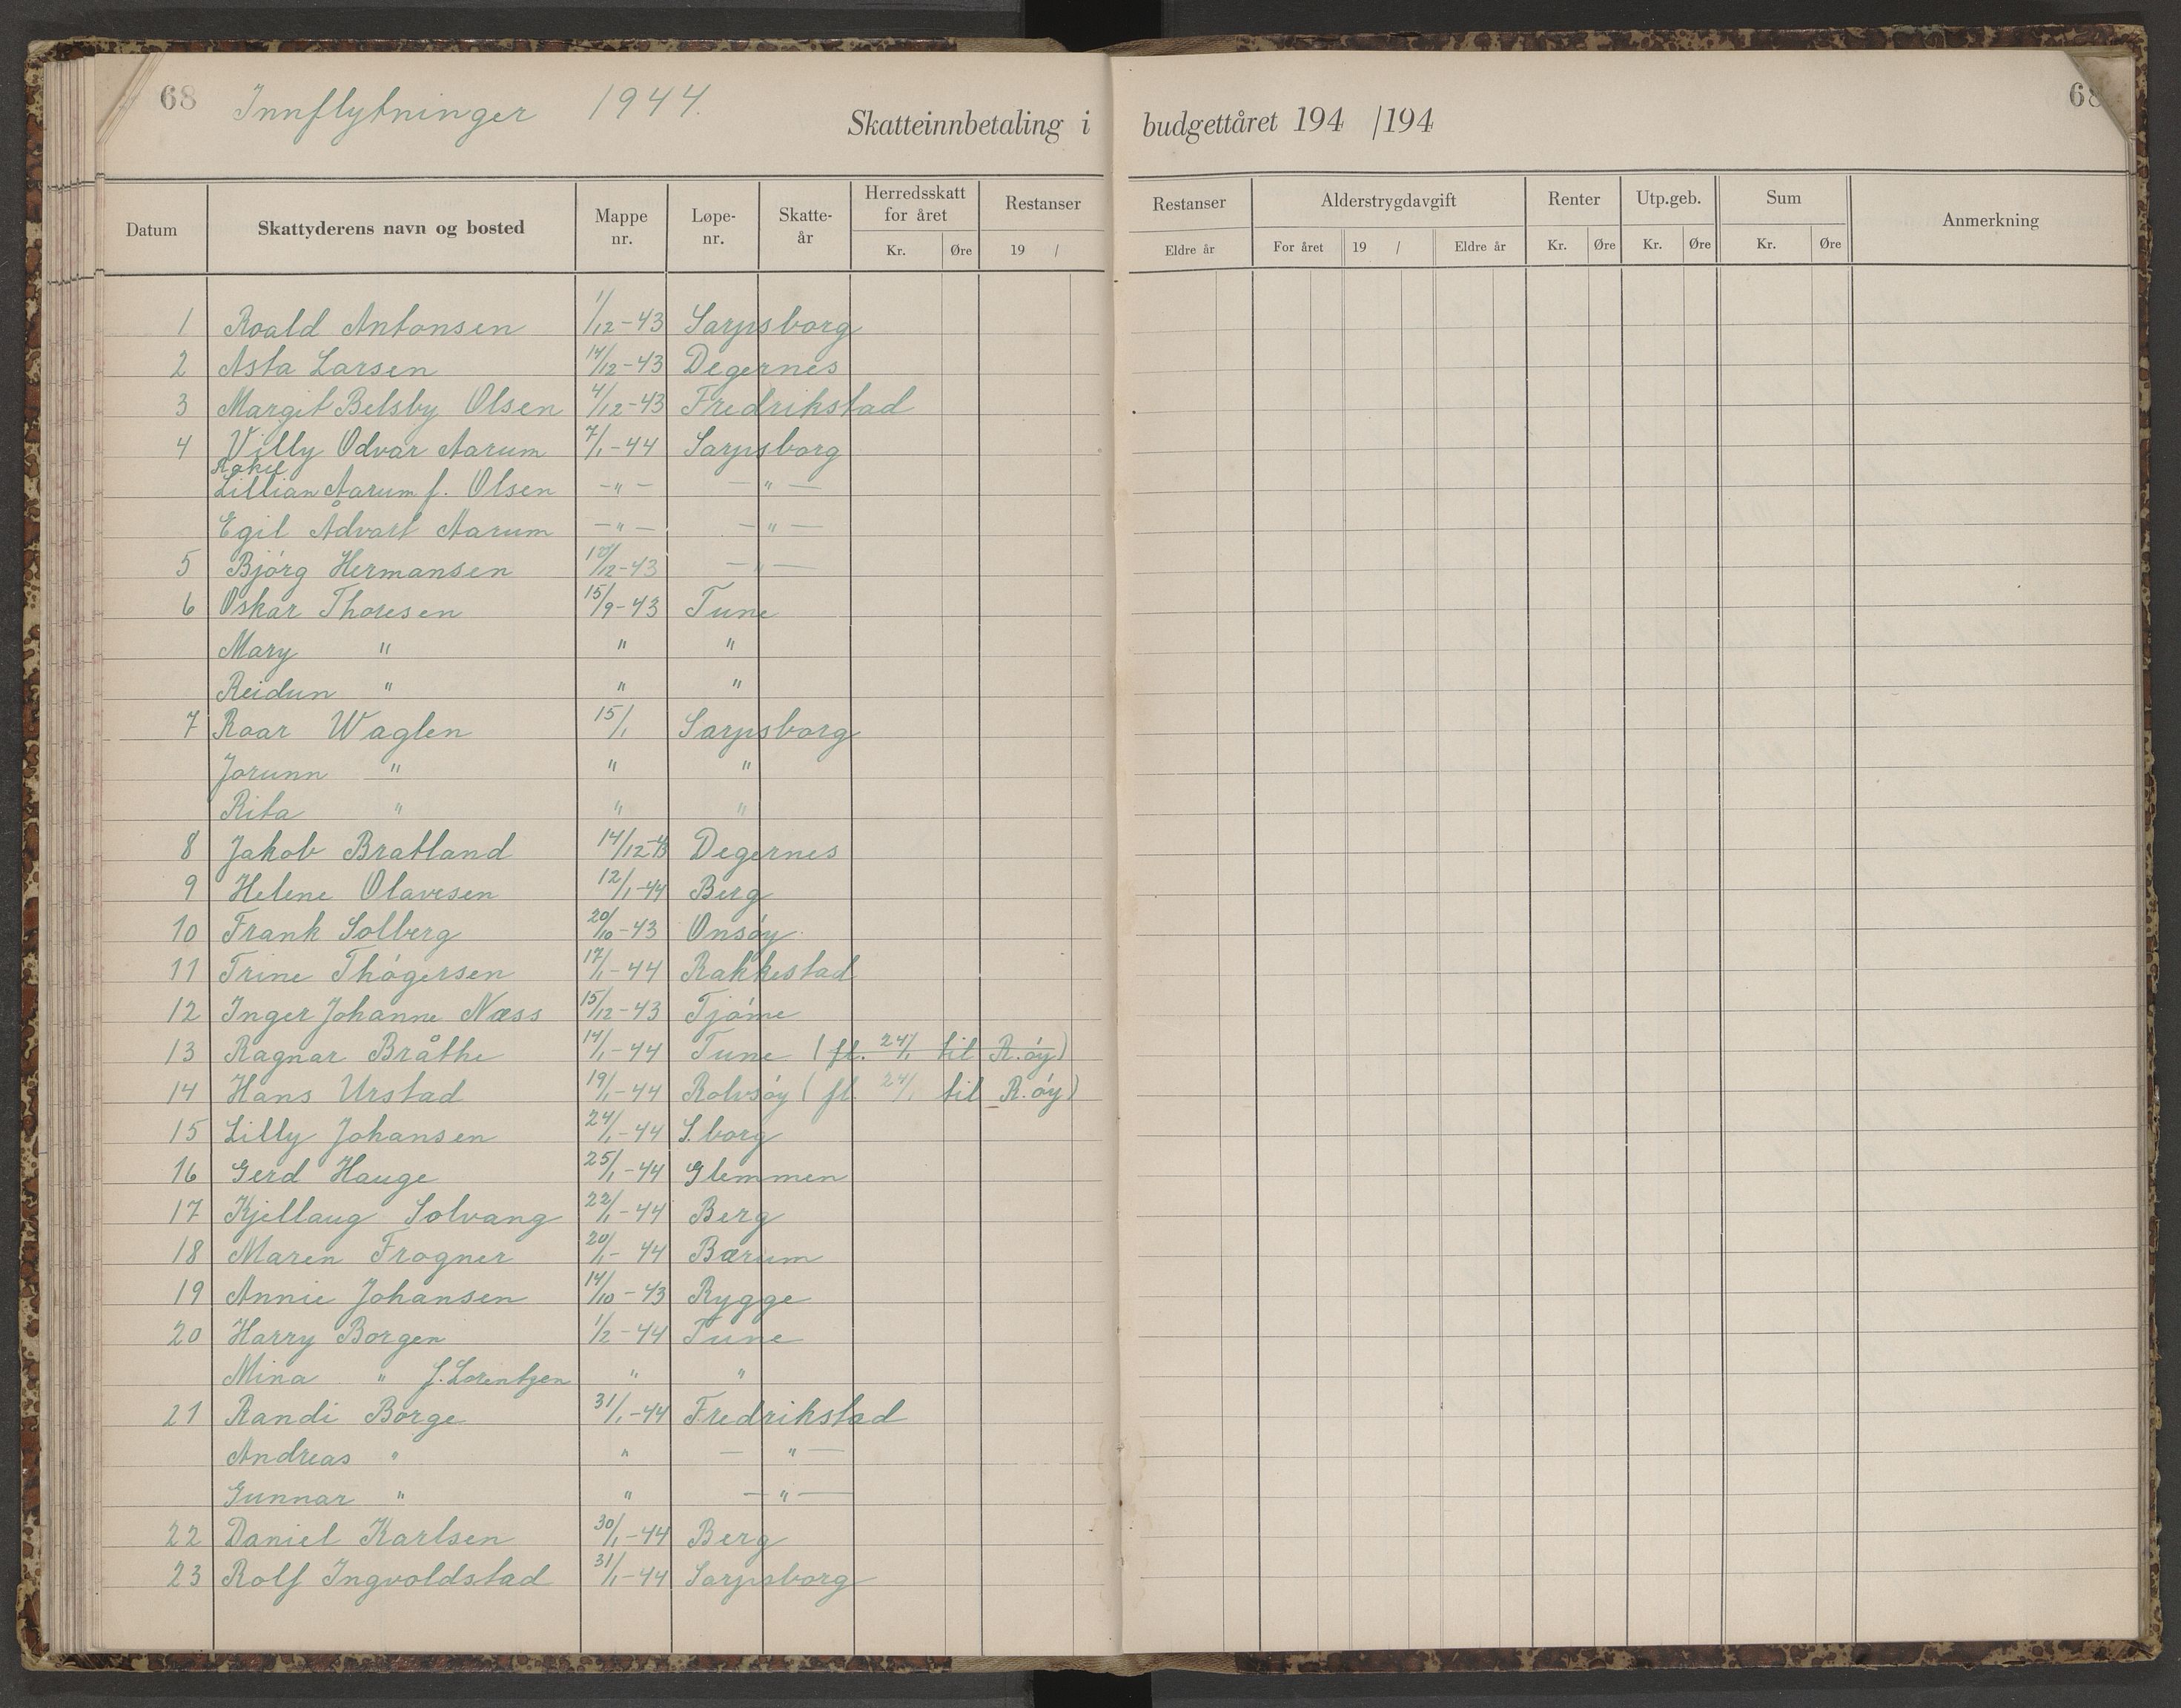 68 Innflytninger 1944. 68
Skatteinnbetaling i budgettåret 194 /194
Datum Skattyderens navn og bosted Mappe nr. Løpe-nr. Skatte-år Herredsskatt for året Kr. Øre Restanser 19 / Restanser Eldre år Alderstrygdavgift For året 19 / Eldre år Renter Kr. Øre Utp.geb. Kr. Øre Sum Kr. Øre Anmerkning
1 Roald Antonsen 1/12-43 Sarpsborg
2 Asta Larsen 14/12-43 Degernes
3 Margit Belsby Olsen 4/12-43 Fredrikstad
4 Villy Odvar Aarum 7/1-44 Sarpsborg
Lillian Aarum f. Olsen -"- -"-
Egil Ådvart Aarum -"- -"-
5 Bjórg Hermansen /12-43 -"-
6 Oskar Thoresen 15/9-43 Tune
Mary " " "
Reidun " " "
7 Roar Waglen 15/1 Sarpsborg
Jorunn " " "
Rita " " "
8 Jakob Bratland 14/12-43 Degernes
9 Helene Olavesen 12/1-44 Berg
10 Frank Solberg 20/10-43 Onsóy
11 Trine Thógersen 17/1-44 Rakkestad
12 Inger Johanne Næss 15/12-43 Tjóme
13 Ragnar Bråthe 14/1-44 Tune (fl. 24/1 til R.óy)
14 Hans Urstad 19/1-44 Rolvsóy (fl. 24/1 til R.óy)
15 Lilly Johansen 24/1-44 S.borg
16 Gerd Hauge 25/1-44 Glemmen
17 Kjellaug Solvang 22/1-44 Berg
18 Maren Frogner 20/1-44 Bærum
19 Annie Johansen 14/10-43 Rygge
20 Harry Borgen 1/2-44 Tune
Mina " f. Lorentzen " "
21 Randi Borge 31/1-44 Fredrikstad
Andreas " " -"-
Gunnar " " -"-
22 Daniel Karlsen 30/1-44 Berg
23 Rolf Ingvoldstad 31/1-44 Sarpsborg